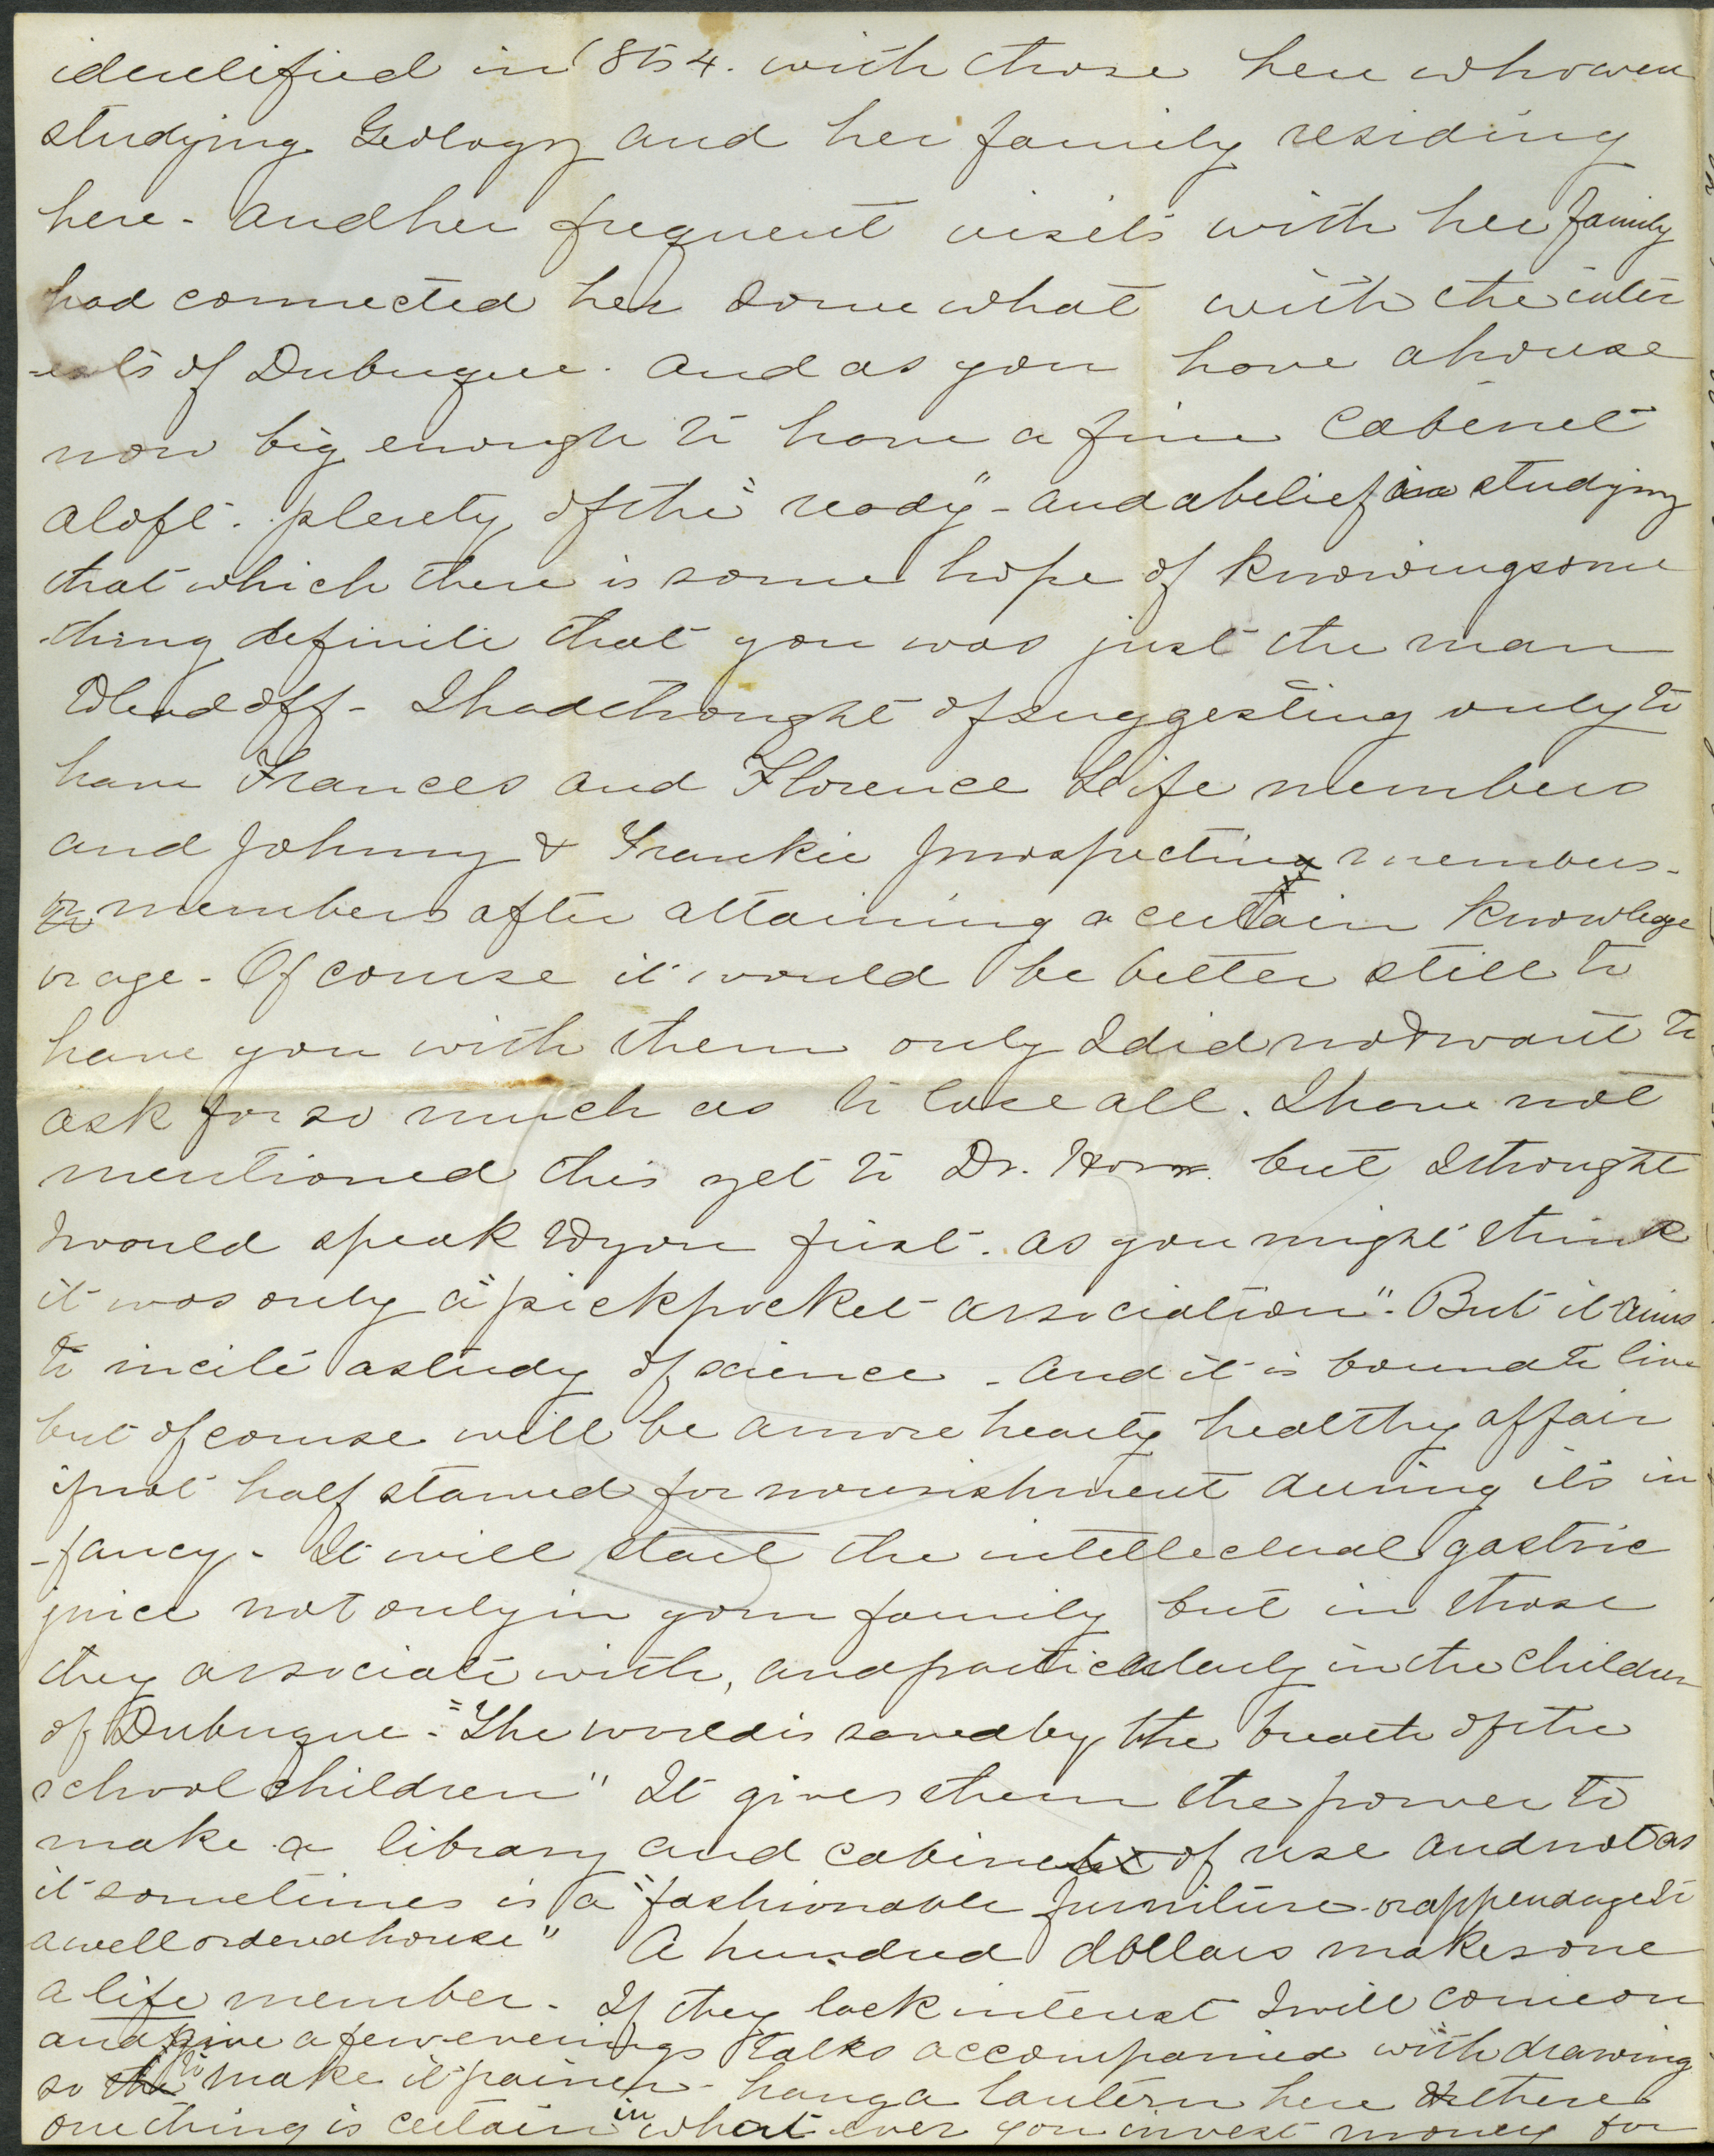 identified in 1854. with those here who were
studying Geology and her family residing
here - and her frequent visits with her family
had connected her somewhat with the inter
-ests of Dubuque. And as you have a house
now big enough to have a fine Cabinet
aloft. plenty of the "ready" - and a belief in studying
that which there is some hope of knowing some
-thing definite that you was just the man
to lead off - I had thought of suggesting only to
have Frances and Florence Life members
and Johnny & Frankie prospecting members -
or members after attaining a certain knowledge
or age - Of course it would be better still to
have you with them only I did not want to
ask for so much as to lose all. I have not
mentioned this yet to Dr. Horr. but I thought
I would speak to you first. as you might think
it was only a "pickpocket association". But it aims
to incite a study of science - and it is bound to live
but of course will be a more hearty healthy affair
if not half starved for nourishment during its in
-fancy - It will start the intellectual gastric
juice not only in your family but in those
they associate with, and particularly in the children
of Dubuque - "The world is saved by the breath of the
school children" It gives them the power to
make a library and cabinet of use and not as
it sometimes is a "fashionable furniture - or appendage to
a well ordered house" A hundred dollars makes one
a life member. If they lack interest I will come on
and give a few evenings talks accompanied with drawing
so to make it plainer - hang a lantern here & there
one thing is certain in what ever you invest money for